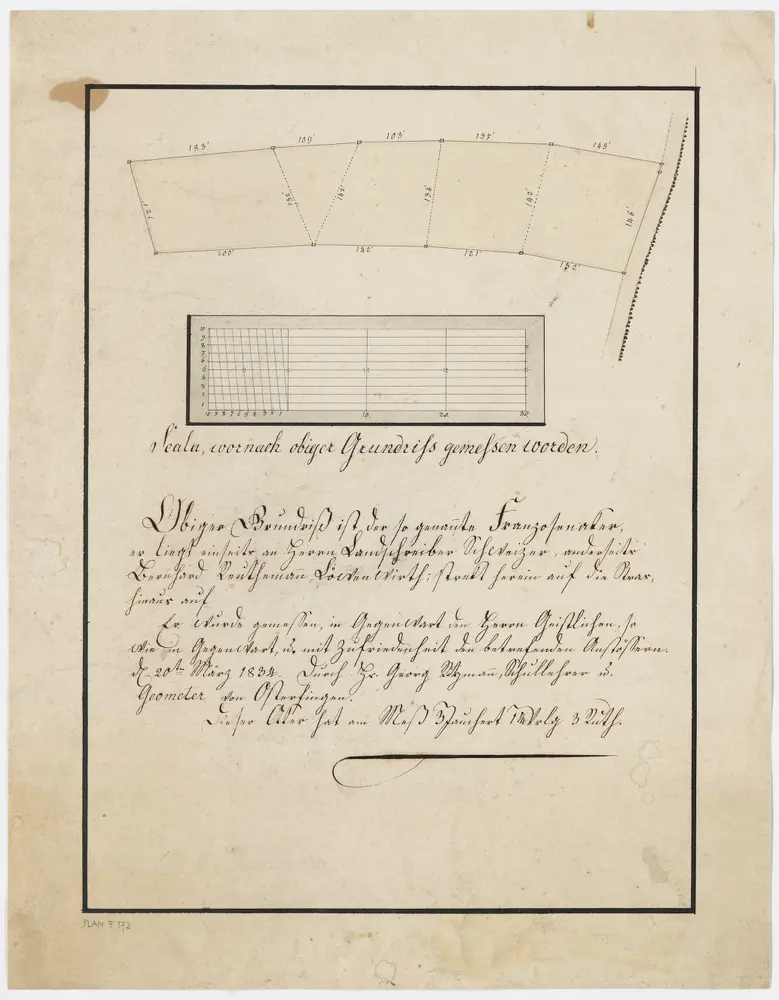 183' 108' 103' 137' 143'
121 142' 134' 142' 146'
200' 142' 121' 132'
10 9 8 7 6 5 4 3 2 1
10 9 8 7 6 5 4 3 2 1 10. 20. 30.
Scala, wornach obiger Grundriss gemessen worden.
Obiger Grundriß ist der so genannte Franzosenaker,
er liegt einseits an Herrn Landschreiber Schweizer, anderseits
Bernhard Reuthemann, Löwenwirth: strekt herein auf die Stras,
hinaus auf
Er wurde gemessen, in Gegenwart den Herrn Geistlichen, so
wie in Gegenwart, u. mit Zufriedenheit den betrefenden Anstössern.
d. 20ten März 1834. Durch Hr. Georg Ritzmann, Schullehrer u.
Geometer von Osterfingen.
Dieser Aker hat am Meß 3 Jauchert 1 Vrlg 3 Ruth.
PLAN F 173